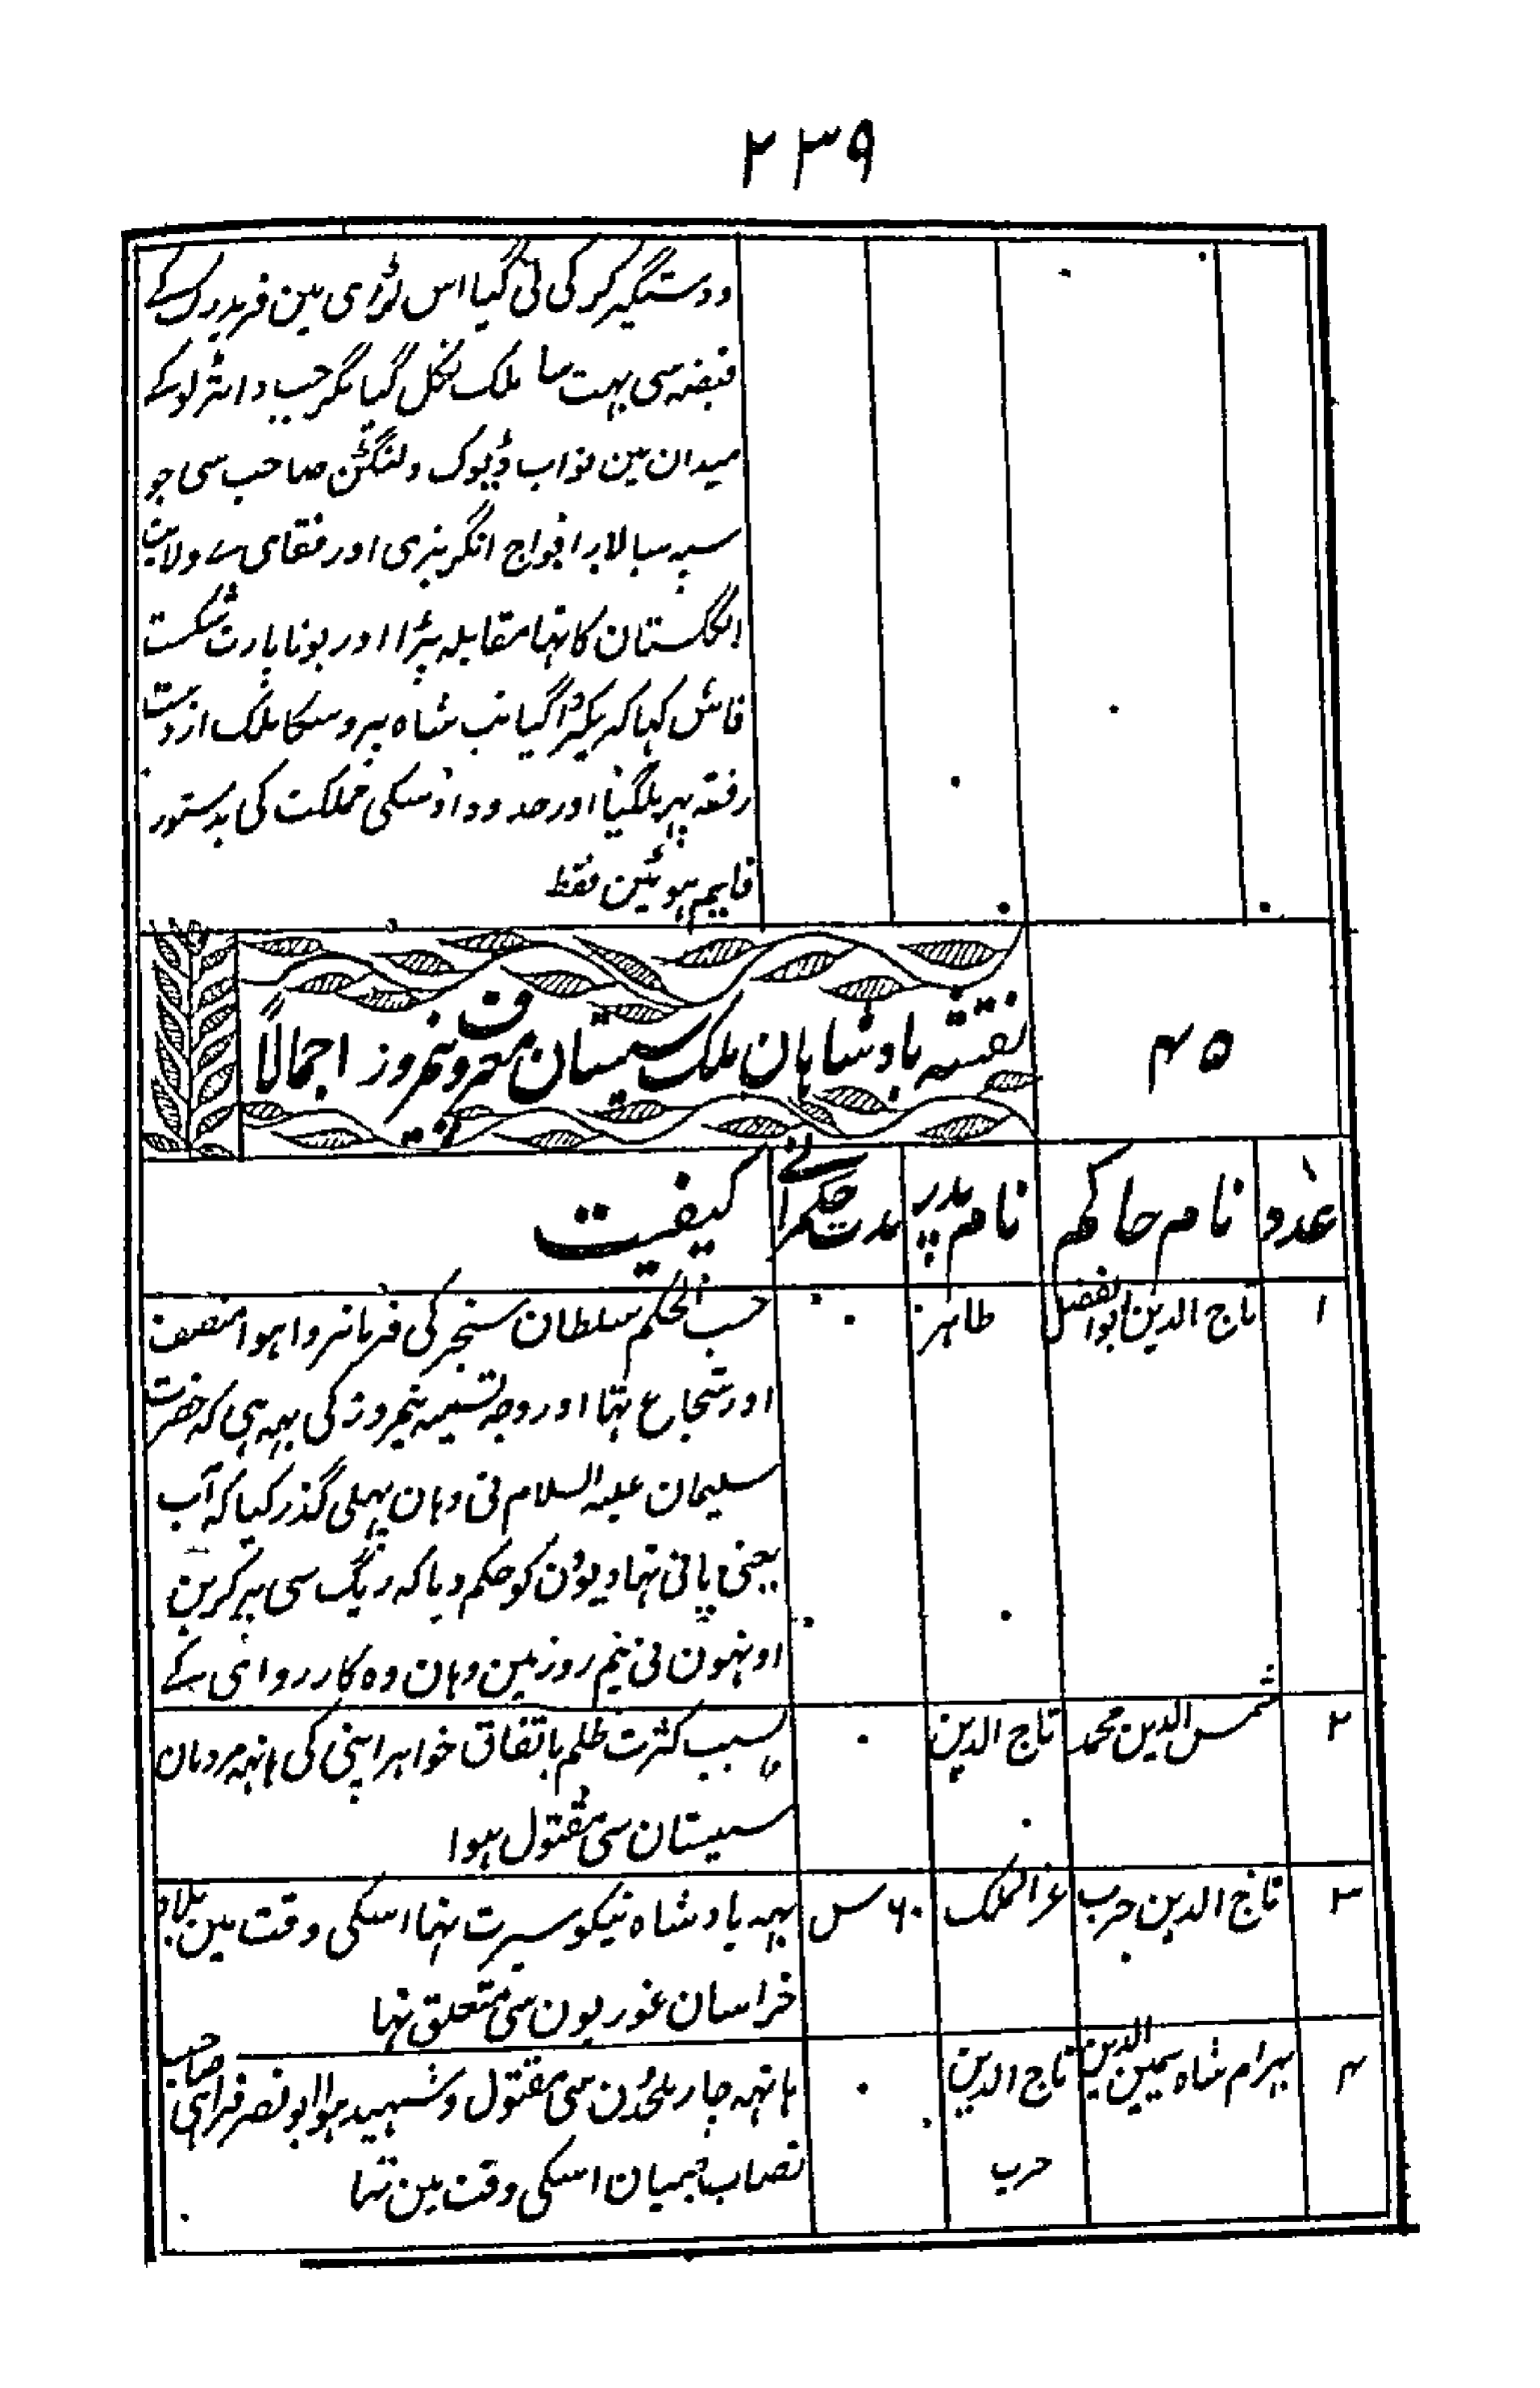 ۲۳۹
و دستگیر کر کی لی گیا اس لڑای مین فریدرک کے
قبضہ سی بہت سا ملک نکل گیا مگر جب واٹرلو کے
میدان مین نواب ڈیوک ولنگٹن صاحب سی جو
سپہ سالار افواج انگریزی اور رفقای ولایت
انگلستان کا تہا مقابلہ پڑا اور بوناپارٹ شکست
فاش کہا کر پکڑا گیا تب شاہ پروسکا ملک از دست
رفتہ پہر ملگیا اور حدود اوسکی مملکت کی بدستور
قایم ہوئین فقط
۴۵
نقشہ بادشاہان ملک سیستان معروف نیمروز اجمالاً
عدد
نام حاکم
نام پدر
مدت حکمرانے
کیفیت
۱
تاج الدین ابوالفضل
طاہر
۰
حسب الحکم سلطان سنجر کی فرمانروا ہوا منصف
اور شجاع تہا اور وجہ تسمیہ نیمروز کی یہہ ہی کہ حضرت
سلیمان علیہ السلام نی وہان پہلی گذر کیا کہ آب
یعنی پانی تہا دیوون کو حکم دیا کہ ریگ سی پر کرین
اونہون نی نیم روز مین وہان وہ کارروائی کے
۲
شمس الدین محمد
تاج الدین
۰
بسبب کثرت ظلم باتفاق خواہر اپنی کی ہاتہہ مردمان
سیستان سی مقتول ہوا
۳
تاج الدین حرب
عز الملک
۶۰ س
یہہ بادشاہ نیکو سیرت تہا اسکی وقت مین بلاد
خراسان غوریون سی متعلق تہا
۴
بہرام شاہ یمین الدین
تاج الدین
حرب
۰
ہاتہہ چار ملحدون سی مقتول و شہید ہوا ابو نصر فراہی صاحب
نصاب صبیان اسکی وقت مین تہا